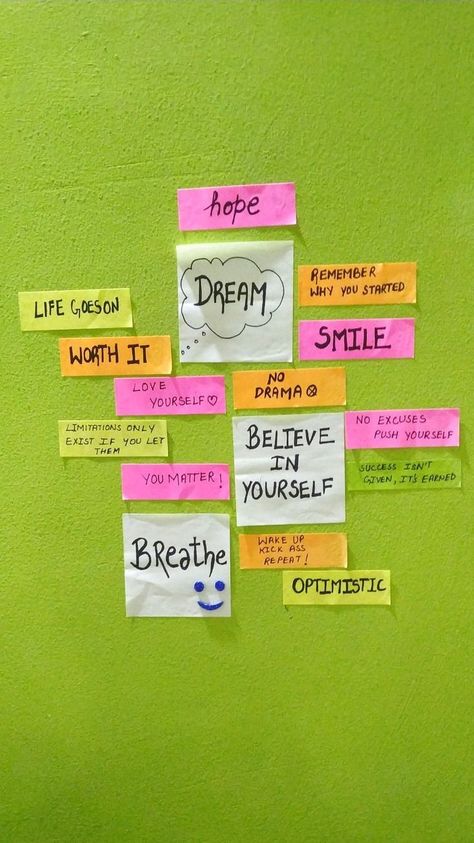 hope
DREAM
REMEMBER
WHY YOU STARTED
LIFE GOES ON
SMILE
WORTH IT
NO
DRAMA
LOVE
YOURSELF
LIMITATIONS ONLY
EXIST IF YOU LET
THEM
BELIEVE
IN
YOURSELF
NO EXCUSES
PUSH YOURSELF
YOU MATTER!
SUCCESS ISN'T
GIVEN, IT'S EARNED
BReathe
WAKE UP
KICK ASS
REPEAT!
OPTIMISTIC